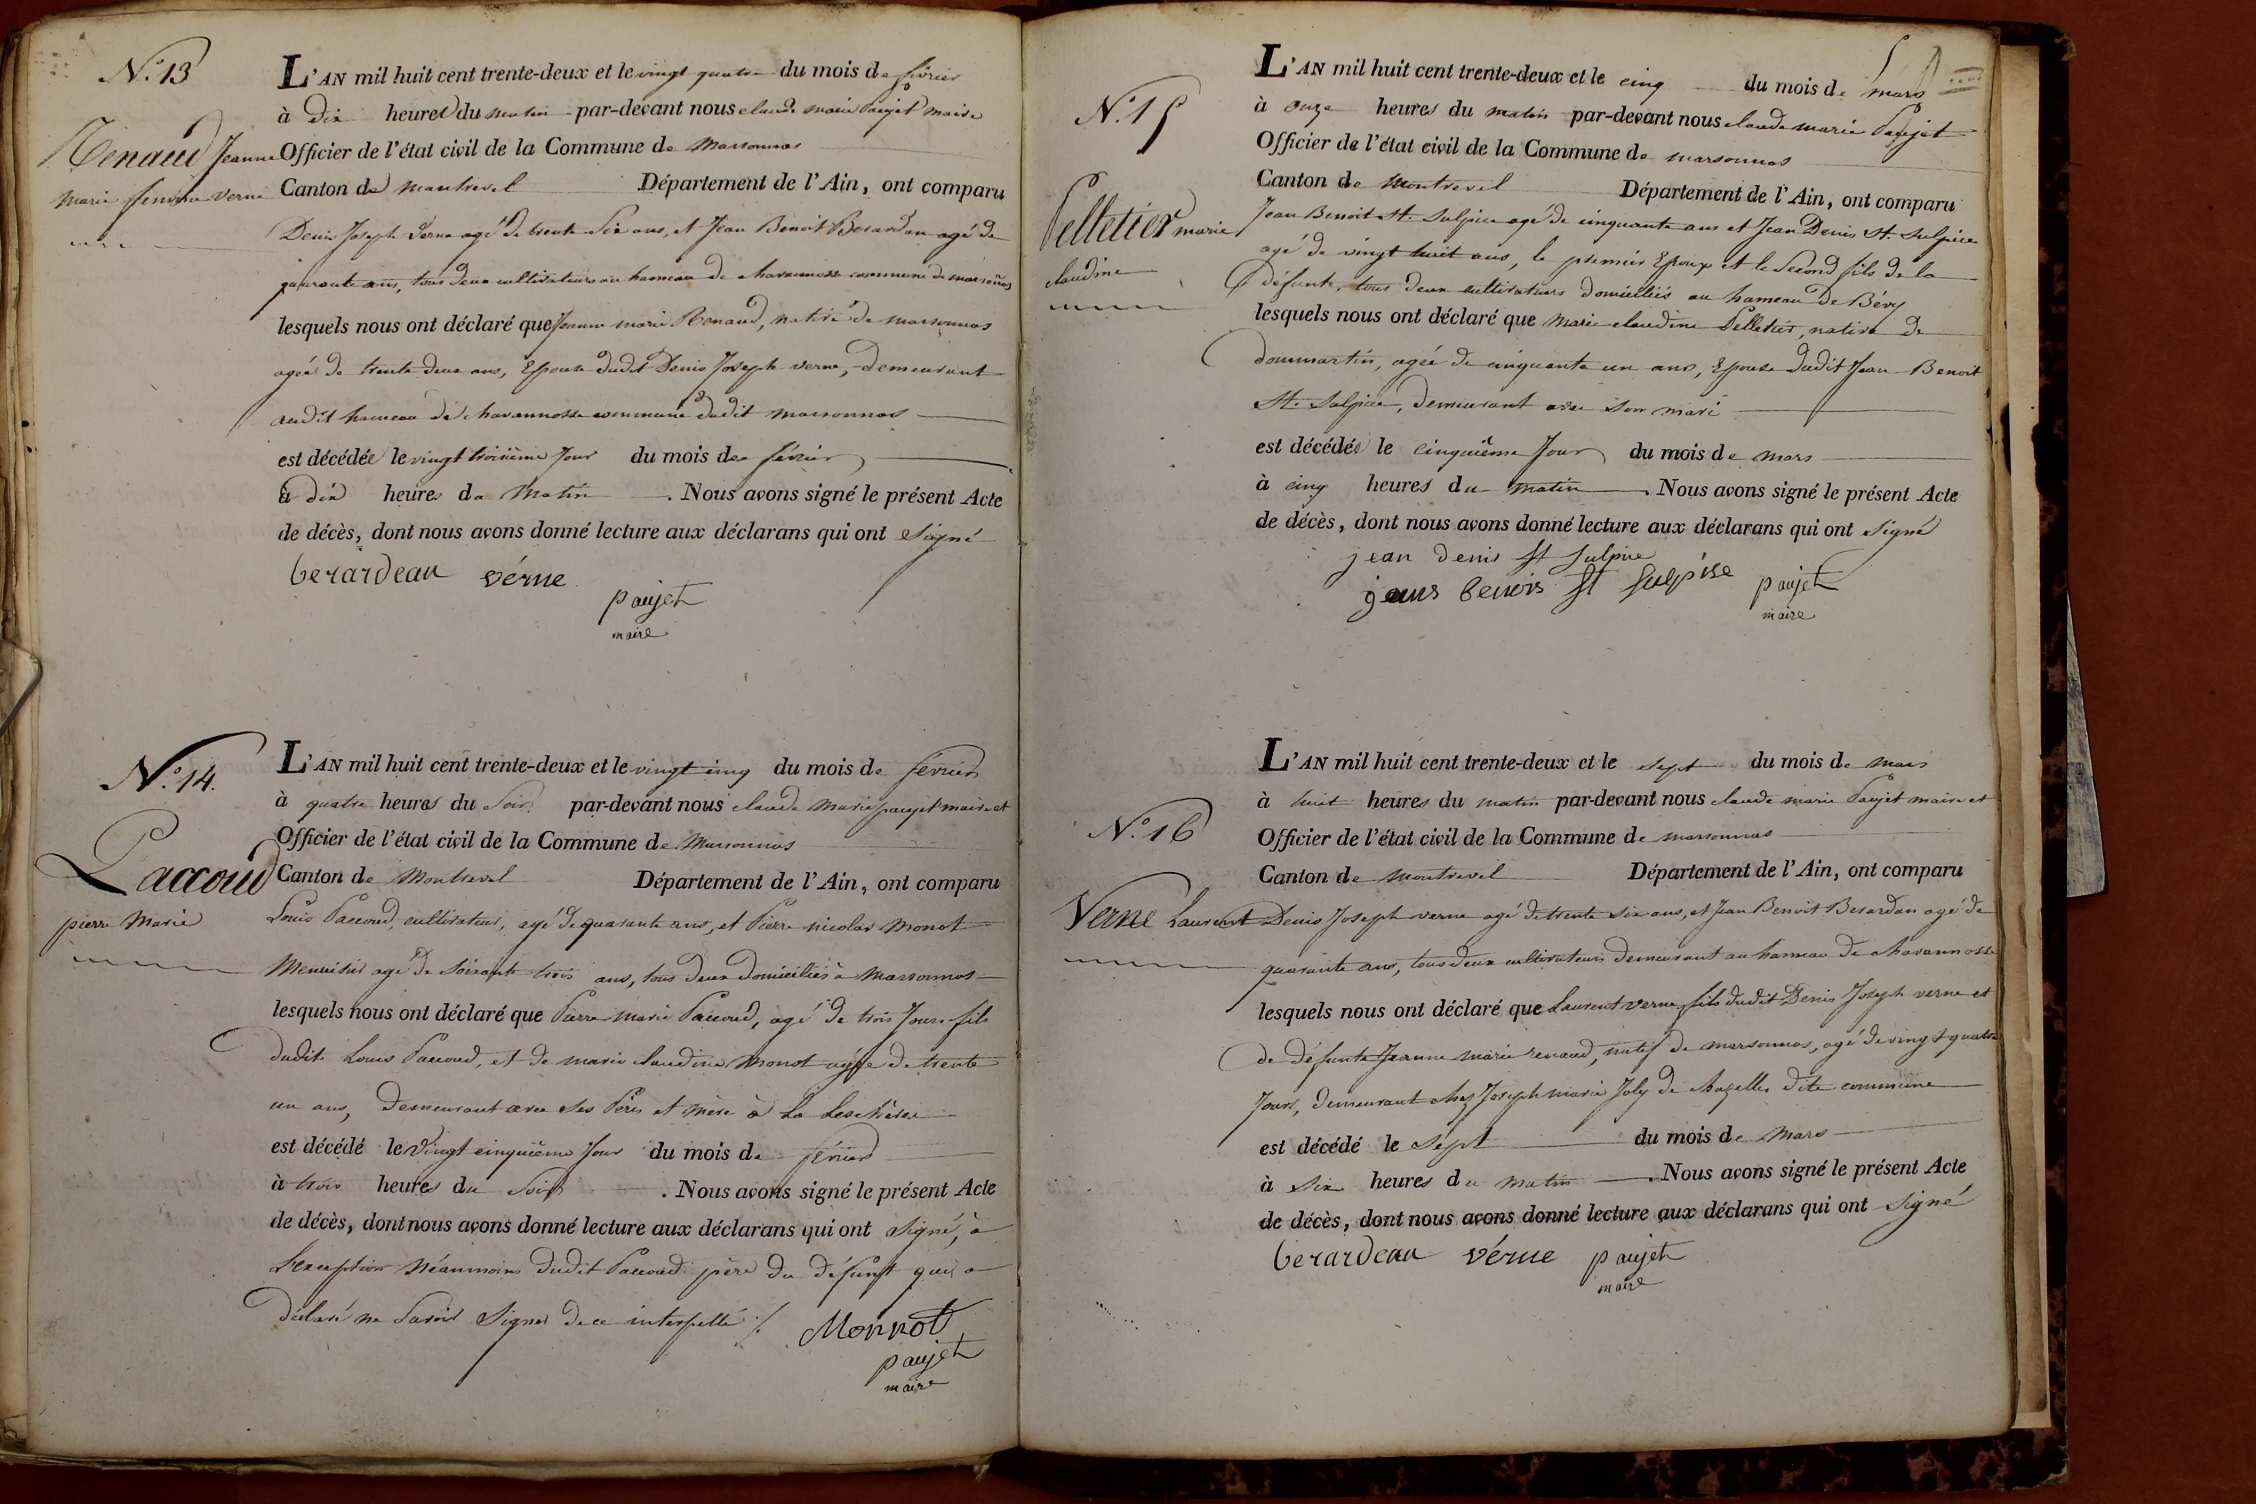 N.° 13
Renaud Jeanne
marie femme verne
L'AN mil huit cent trente-deux et le vingt quatre du mois de février
à dix heures du matin par-devant nous claude marie Paujet maire
Officier de l'état civil de la Commune de Marsonnas
Canton de Montrevel Département de l'Ain, ont comparu
Denis Joseph Verne agé de trente Six ans, et Jean Benoit Berardan agé de
quarante ans, tous deux cultivateurs au hameau de chavannosse commune de marsonnas
lesquels nous ont déclaré que Jeanne marie Renaud, native de marsonnas
agée de trente deux ans, Epouse dudit Denis Joseph verne, demeurant
audit hameau de chavannosse commune dudit marsonnas
est décédée le vingt troisième Jour du mois de février
à dix heures du Matin . Nous avons signé le présent Acte
de décès, dont nous avons donné lecture aux déclarans qui ont Signé
berardeau vérne
paujet
maire
N.° 14.
Paccoud
pierre Marie
L'AN mil huit cent trente-deux et le vingt cinq du mois de février
à quatre heures du Soir par-devant nous claude Marie paujet maire et
Officier de l'état civil de la Commune de Marsonnas
Canton de Montrevel Département de l'Ain, ont comparu
Louis Paccoud, cultivateur, agé de quarante ans, et Pierre nicolas Monot
Menuisier agé de Soixante trois ans, tous deux domiciliés à Marsonnas
lesquels nous ont déclaré que Pierre Marie Paccoud, agé de trois Jours fils
dudit Louis Paccoud, et de marie claudine Monot agée de trente
un ans, demeurant avec ses Père et mère à La Leschère
est décédé le Vingt cinquième Jour du mois de février
à trois heures du Soir . Nous avons signé le présent Acte
de décès, dont nous avons donné lecture aux déclarans qui ont Signé, à
L'exception Néanmoins dudit Paccoud père du défunt qui a
déclaré ne Savoir Signer de ce interpellé ./.
Monnot
paujet
maire
N.° 15
Pelletier marie
claudine
L'AN mil huit cent trente-deux et le cinq du mois de mars
à onze heures du matin par-devant nous claude marie Paujet
Officier de l'état civil de la Commune de marsonnas
Canton de Montrevel Département de l'Ain, ont comparu
Jean Benoit St. Sulpice agé de cinquante ans et Jean Denis St. Sulpice
agé de vingt huit ans, le premier Epoux et le Second fils de la
défunte, tous deux cultivateurs domiciliés au hameau de Béry
lesquels nous ont déclaré que Marie claudine Pelletier, native de
dommartin, agée de cinquante un ans, Epouse dudit Jean Benoit
St. Sulpice, demeurant avec Son mari
est décédée le cinquième Jour du mois de mars
à cinq heures du matin . Nous avons signé le présent Acte
de décès, dont nous avons donné lecture aux déclarans qui ont Signé
jean denis St Sulpice
jeans benois St Sulpise paujet
maire
N.° 16
Verne Laurent
L'AN mil huit cent trente-deux et le Sept du mois de Mars
à huit heures du matin par-devant nous claude marie Paujet maire et
Officier de l'état civil de la Commune de marsonnas
Canton de Montrevel Département de l'Ain, ont comparu
Denis Joseph verne agé de trente Six ans, et Jean Benoit Berardan agé de
quarante ans, tous deux cultivateurs demeurant au hameau de chavannosse
lesquels nous ont déclaré que Laurent verne fils dudit Denis Joseph verne et
de défunte Jeanne Marie renaud, natif de marsonnas, agé de vingt quatre
Jours, demeurant chez Joseph marie Joly de chazelles dite commune
est décédé le Sept du mois de Mars
à Six heures du matin . Nous avons signé le présent Acte
de décès, dont nous avons donné lecture aux déclarans qui ont Signé
berardeau vérne paujet
maire